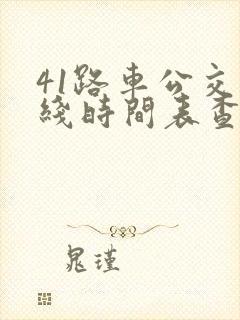 41路車公交
綫時間表查
晁瑾